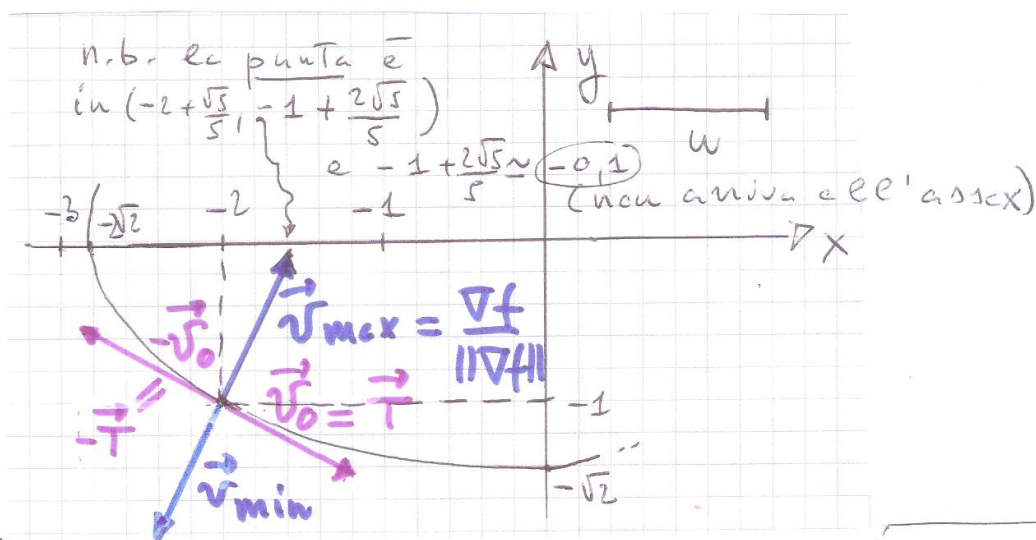 n.b. la punta è
in (-2+√5/5, -1+2√5/5)
e -1+2√5/5 ≃ -0,1
(non arriva all'asse x)
y
u
-3
-2√2
-2
-1
x
v⃗max = ∇f/||∇f||
-v⃗0
=
-T⃗
v⃗0 = T⃗
-1
v⃗min
-√2